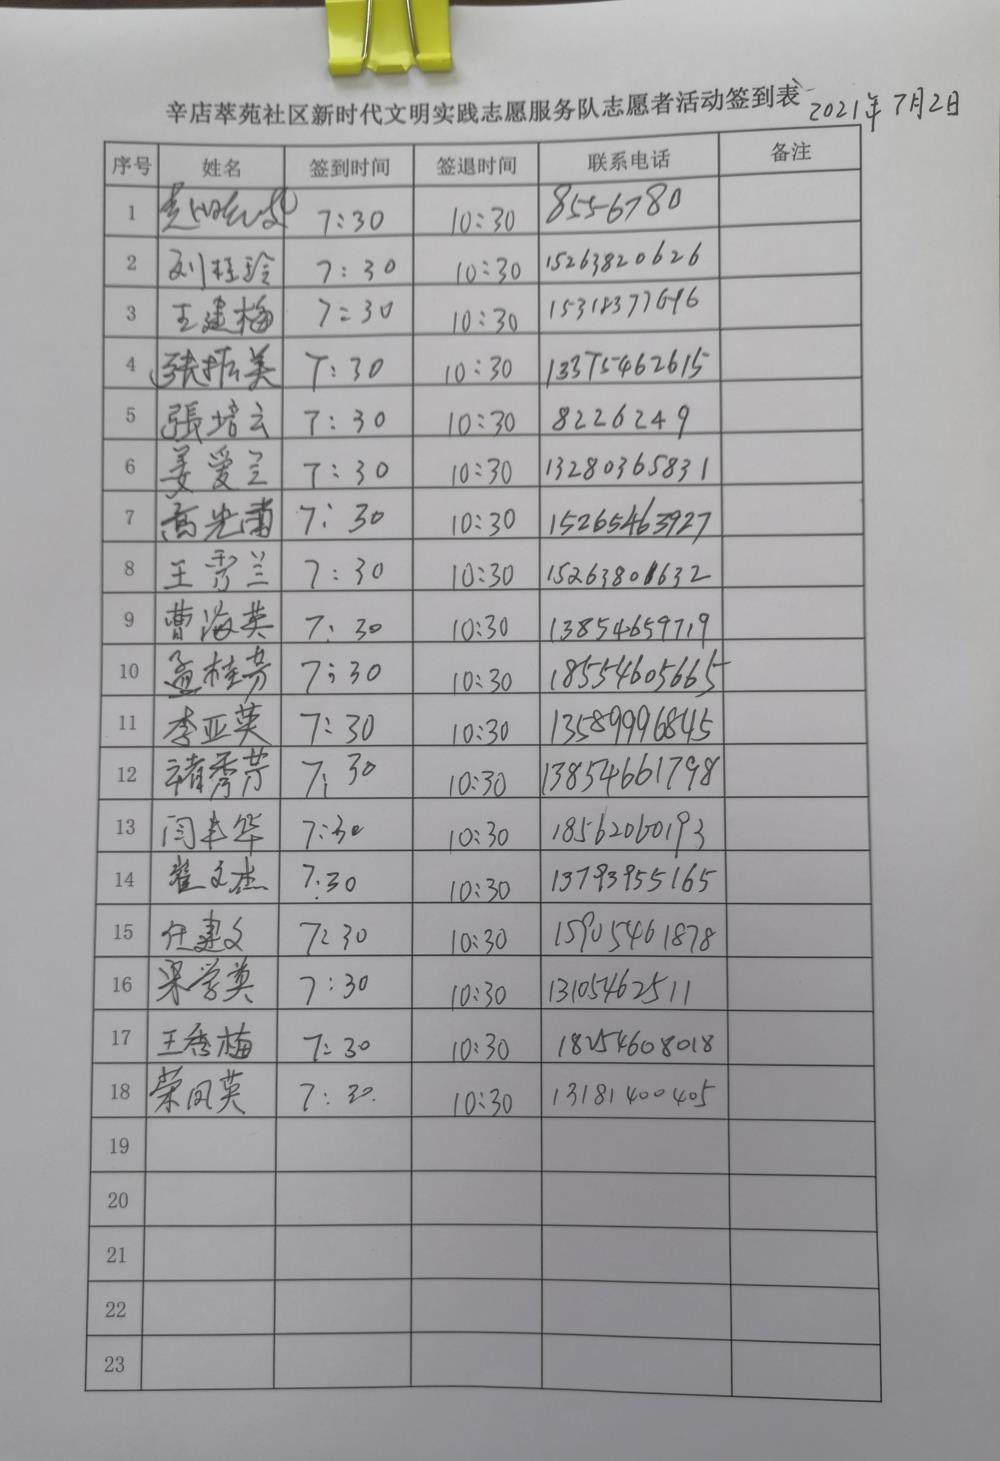 辛店萃苑社区新时代文明实践志愿服务队志愿者活动签到表 2021年7月2日
序号 姓名 签到时间 签退时间 联系电话 备注
1 7:30 10:30 8556780
2 刘桂玲 7:30 10:30 15263820626
3 王建梅 7:30 10:30 15318377696
4 張振美 7:30 10:30 13375462615
5 張培云 7:30 10:30 8226249
6 姜爱兰 7:30 10:30 13280365831
7 高光蒲 7:30 10:30 15265463927
8 王秀兰 7:30 10:30 15263801632
9 曹海英 7:30 10:30 13854659719
10 孟桂芳 7:30 10:30 18554605665
11 李亚英 7:30 10:30 13589996845
12 禇秀芳 7:30 10:30 13854661798
13 闫丰华 7:30 10:30 18562060193
14 翟文杰 7:30 10:30 13793955165
15 任建文 7:30 10:30 15905461878
16 梁学英 7:30 10:30 13105462511
17 王秀梅 7:30 10:30 18254608018
18 荣凤英 7:30 10:30 13181400405
19
20
21
22
23